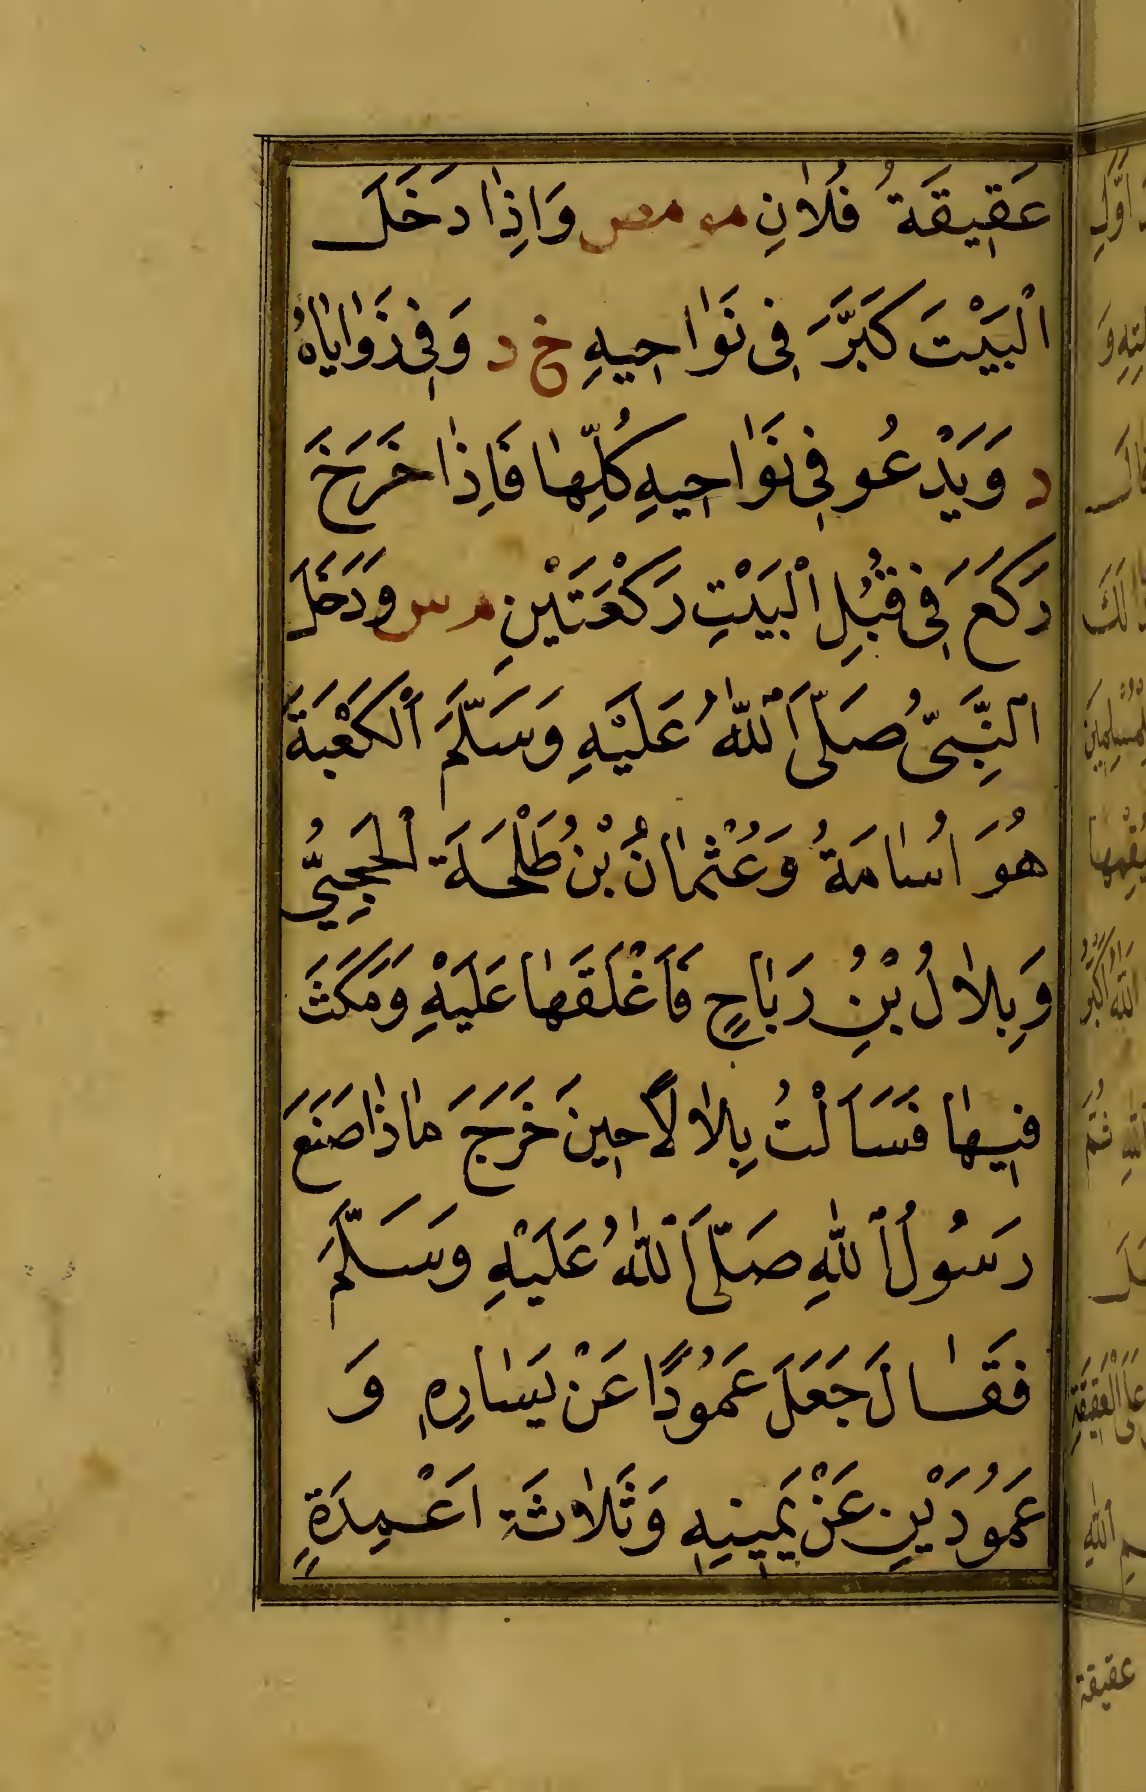 عَقِيقَةُ فُلَانٍ مو مص وَاِذَا دَخَلَ
الْبَيْتَ كَبَّرَ فِى نَوَاحِيهِ خ د وَفِى زَوَايَاهُ
د وَيَدْعُو فِى نَوَاحِيهِ كُلِّهَا فَاِذَا خَرَجَ
رَكَعَ فِى قُبُلِ الْبَيْتِ رَكْعَتَيْنِ م س وَدَخَلَ
النَّبِىُّ صَلَّى اللّٰهُ عَلَيْهِ وَسَلَّمَ الْكَعْبَةَ
هُوَ اُسَامَةُ وَعُثْمَانُ بْنُ طَلْحَةَ الْحَجَبِىُّ
وَبِلَالُ بْنُ رَبَاحٍ فَاَغْلَقَهَا عَلَيْهِ وَمَكَثَ
فِيهَا فَسَاَلْتُ بِلَالًا حِينَ خَرَجَ مَاذَا صَنَعَ
رَسُولُ اللّٰهِ صَلَّى اللّٰهُ عَلَيْهِ وَسَلَّمَ
فَقَالَ جَعَلَ عَمُودًا عَنْ يَسَارِهِ وَ
عَمُودَيْنِ عَنْ يَمِينِهِ وَثَلَاثَةَ اَعْمِدَةٍ
عقيقة